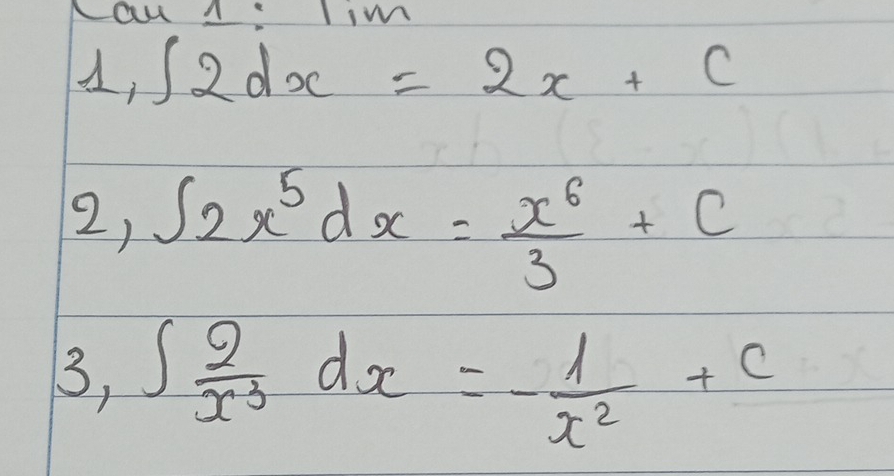 Câu 1: Tìm
1, ∫ 2 dx = 2x + C
2, ∫ 2x⁵ dx = x⁶/3 + C
3, ∫ 2/x³ dx = -1/x² + C